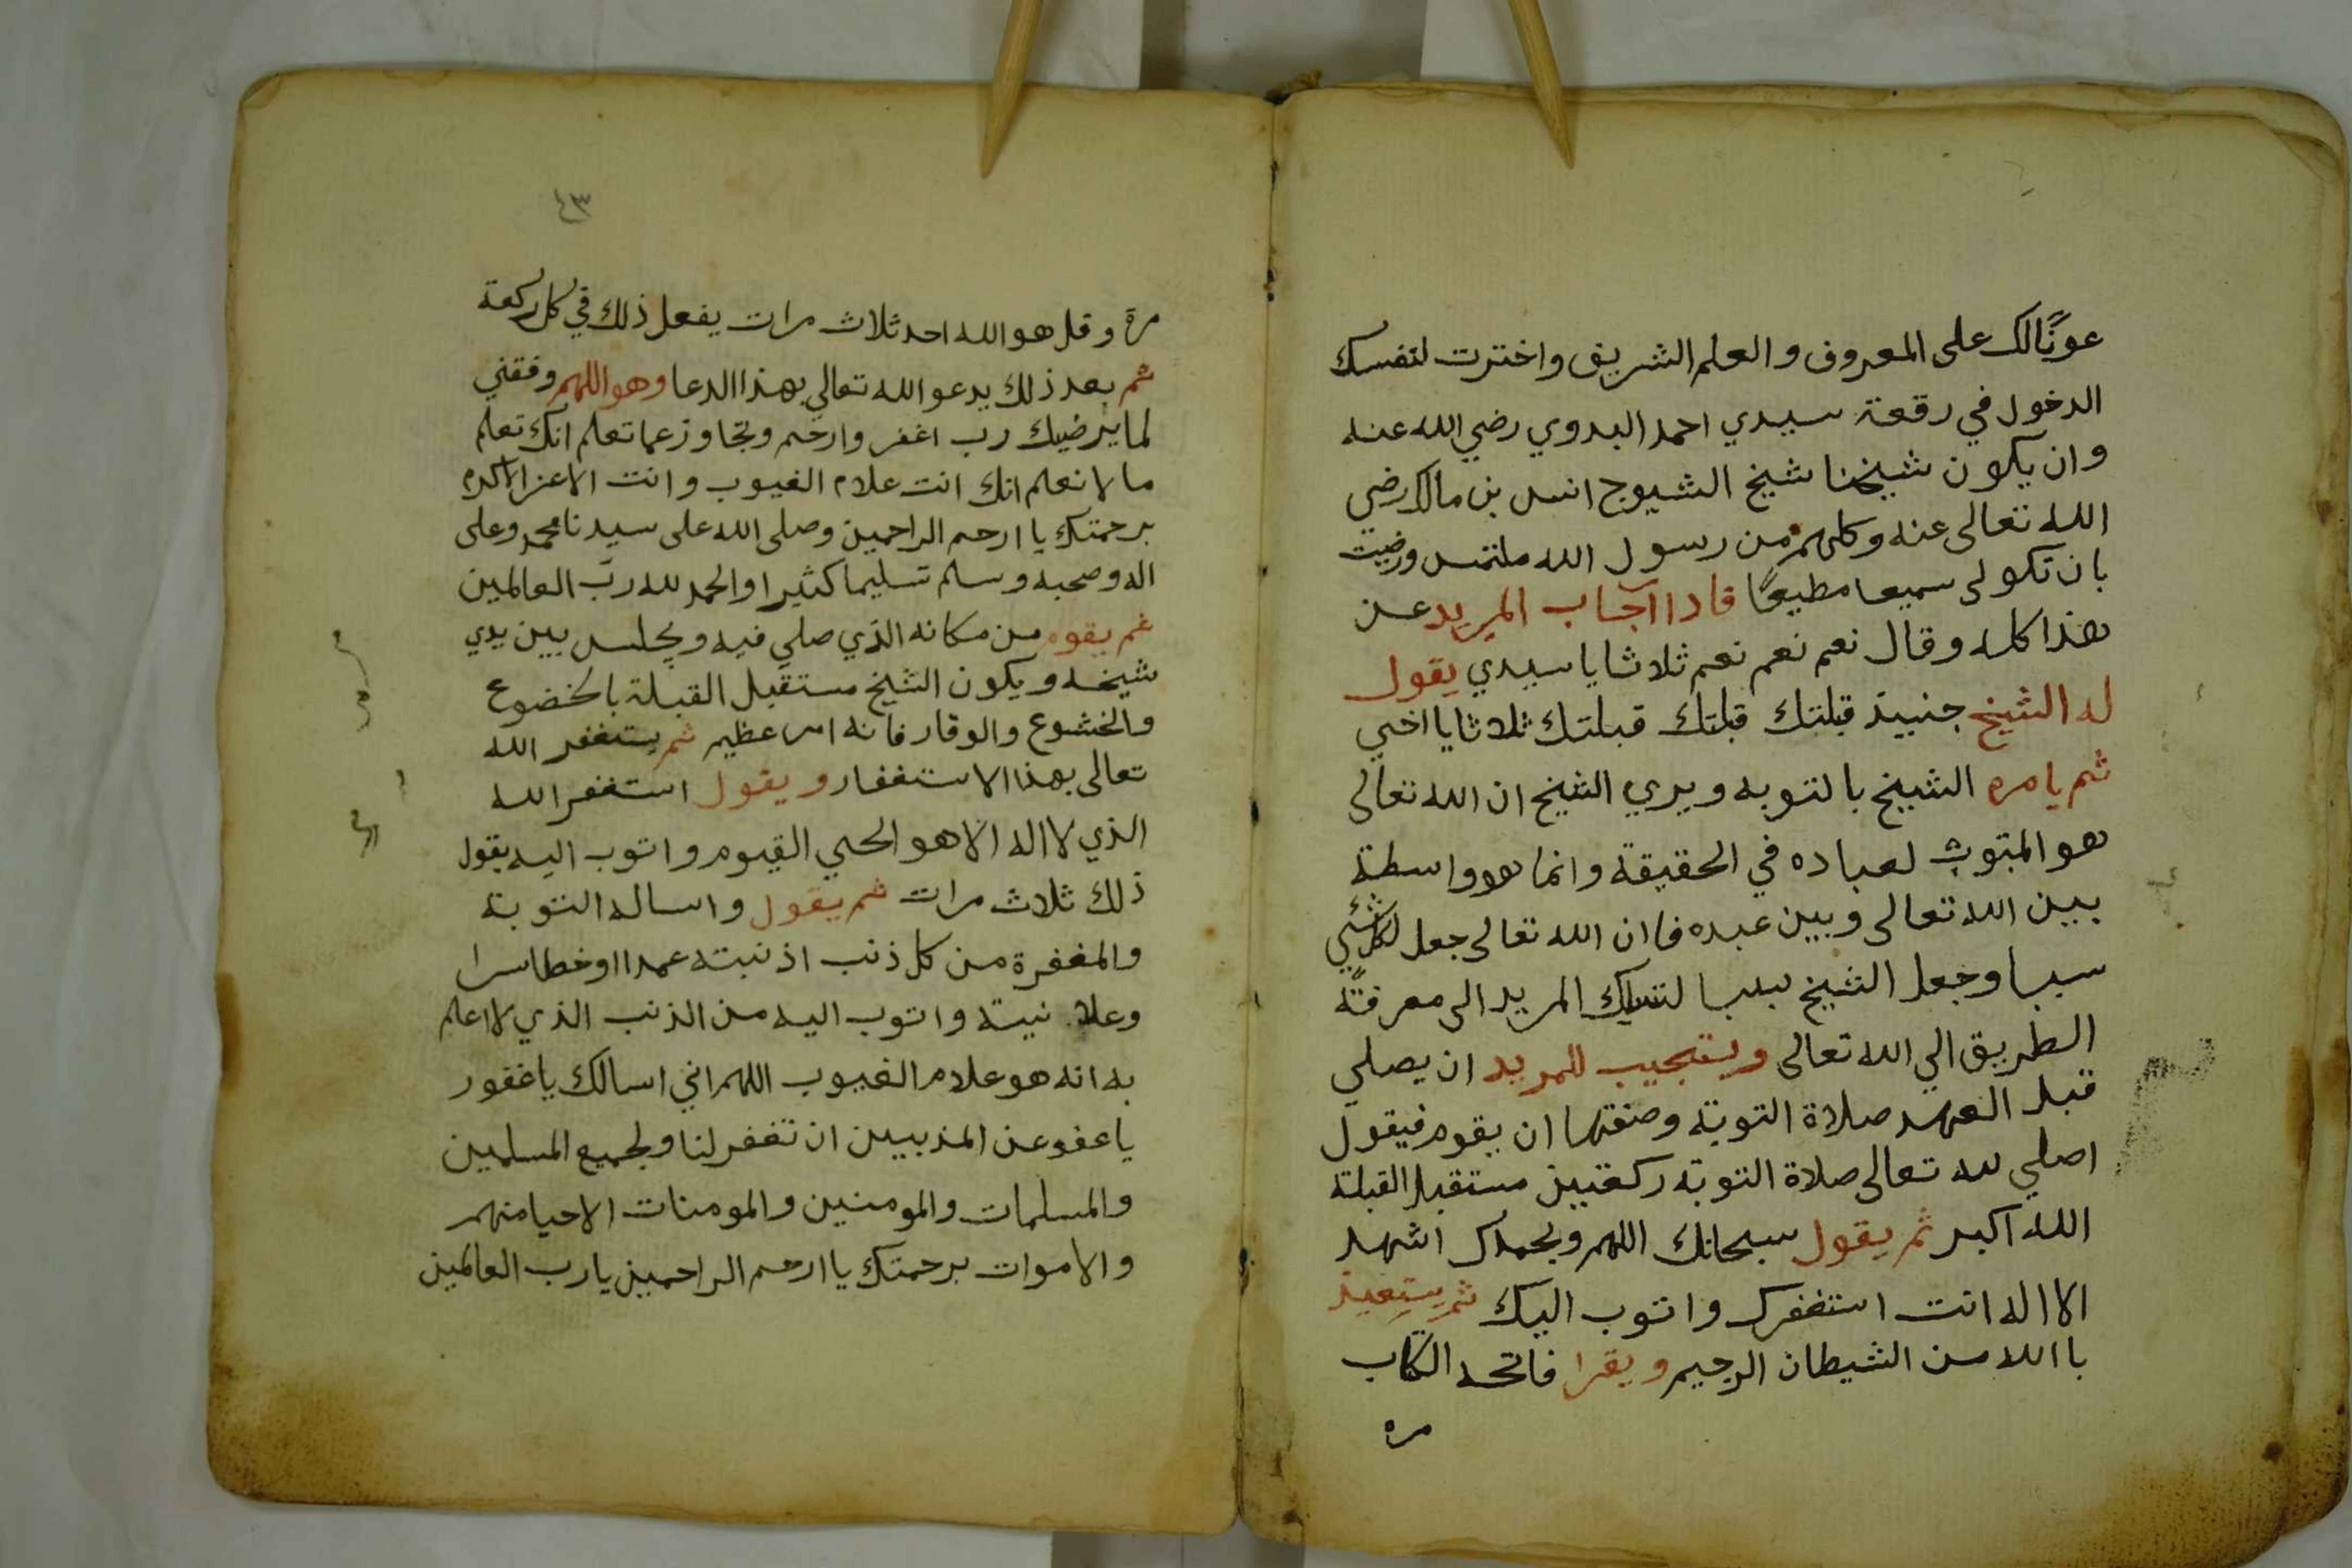 عونًا لك على المعروف والعلم الشريف واخترت لنفسك
الدخول في رقعة سيدي احمد البدوي رضي الله عنه
وان يكون شيخنا شيخ الشيوخ انس بن مالك رضي
الله تعالى عنه وكلهم من رسول الله ملتمس ورضيت
بان تكو لى سميعا مطيعًا فاذا آجاب المريد عن
هذا كله وقال نعم نعم نعم ثلاثا يا سيدي يقول
له الشيخ حنييذ قبلتك قبلتك قبلتك ثلاثا يا اخي
ثم يامره الشيخ بالتوبه ويري الشيخ ان الله تعالى
هو المتوب لعباده في الحقيقة وانما هو واسطة
بين الله تعالى وبين عبده فان الله تعالى جعل لكل شئي
سببا وجعل الشيخ سببا لتسليك المريد الى معرفة
الطريق الي الله تعالى ويستحيب للمريد ان يصلي
قبل العهد صلاة التوبة وصفتها ان يقوم فيقول
اصلي لله تعالى صلاة التوبة ركعتين مستقبل القبلة
الله اكبر ثم يقول سبحانك اللهم وبحمدك اشهد
الا اله انت استغفرك واتوب اليك ثم يستعيذ
باالله من الشيطان الرجيم ويقرا فاتحه الكتاب
مره
٤٣
مرة وقل هو الله احد ثلاث مرات يفعل ذلك في كل ركعة
ثم بعد ذلك يدعو الله تعالي بهذا الدعا وهو اللهم وفقني
لما يرضيك رب اغفر وارحم وتجاوز عما تعلم انك تعلم
ما لا نعلم انك انت علام الغيوب وانت الاعز الاكرم
برحمتك يا ارحم الراحمين وصلى الله على سيدنا محمد وعلى
اله وصحبه وسلم تسليما كثيرا والحمد لله رب العالمين
ثم يقوم من مكانه الذي صلي فيه ويجلس بين يدي
شيخه ويكون الشيخ مستقبل القبلة بالخضوع
والخشوع والوقار فانه امر عظيم ثم يستغفر الله
تعالى بهذا الاستغفار ويقول استغفر الله
الذي لا اله الا هو الحي القيوم واتوب اليه يقول
ذلك ثلاث مرات ثم يقول واساله التوبة
والمغفرة من كل ذنب اذنبته عمدا اوخطا سرا
وعلا نيته واتوب اليه من الذنب الذي لا اعلم
به انه هو علام الغيوب اللهم اني اسالك يا غفور
يا عفو عن المذنبين ان تغفر لنا ولجميع المسلمين
والمسلمات والمومنين والمومنات الاحيا منهم
والاموات برحمتك يا ارحم الراحمين يا رب العالمين